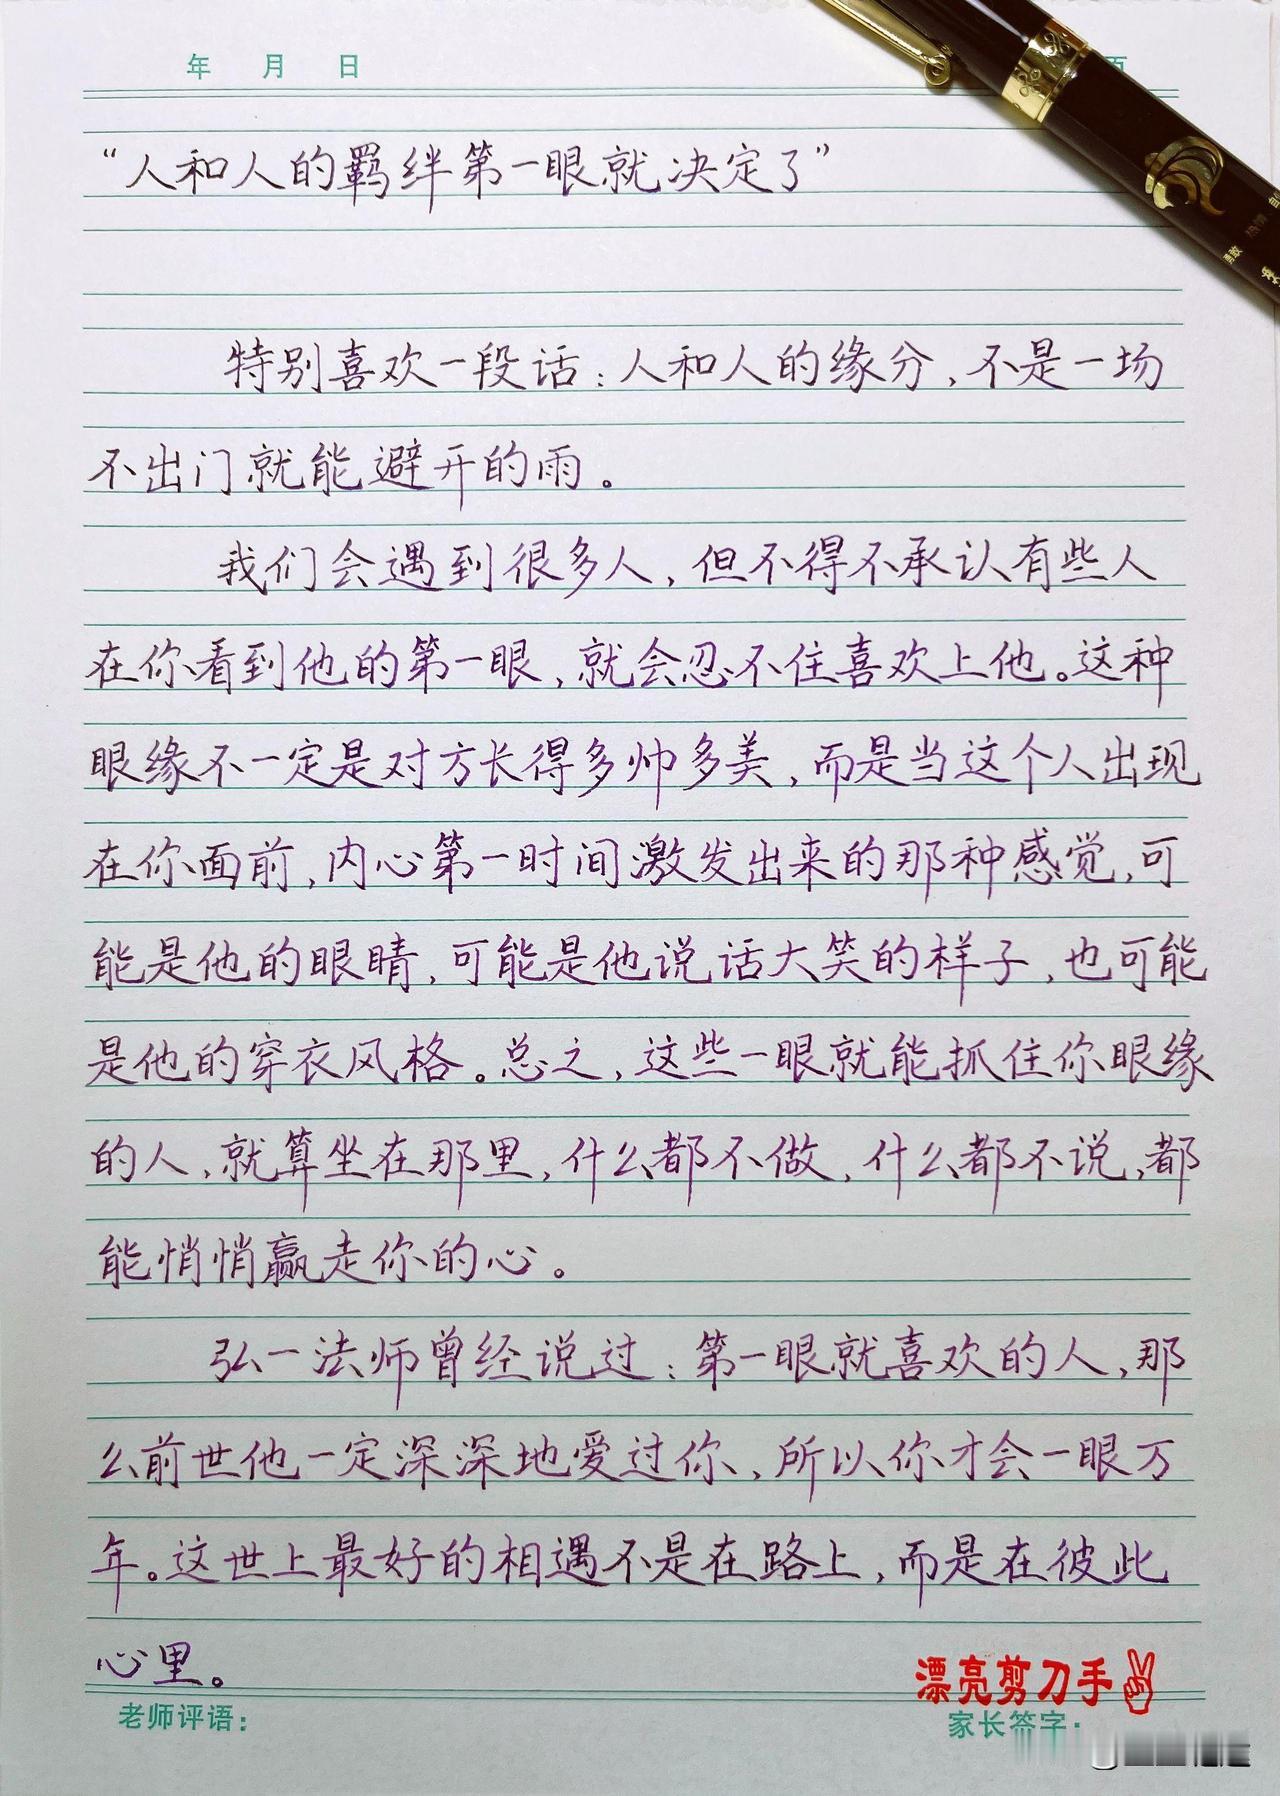 年 月 日 页
“人和人的羁绊第一眼就决定了”
特别喜欢一段话：人和人的缘分，不是一场
不出门就能避开的雨。
我们会遇到很多人，但不得不承认有些人
在你看到他的第一眼，就会忍不住喜欢上他。这种
眼缘不一定是对方长得多帅多美，而是当这个人出现
在你面前，内心第一时间激发出来的那种感觉，可
能是他的眼睛，可能是他说话大笑的样子，也可能
是他的穿衣风格。总之，这些一眼就能抓住你眼缘
的人，就算坐在那里，什么都不做，什么都不说，都
能悄悄赢走你的心。
弘一法师曾经说过：第一眼就喜欢的人，那
么前世他一定深深地爱过你，所以你才会一眼万
年。这世上最好的相遇不是在路上，而是在彼此
心里。
漂亮剪刀手
老师评语： 家长签字：